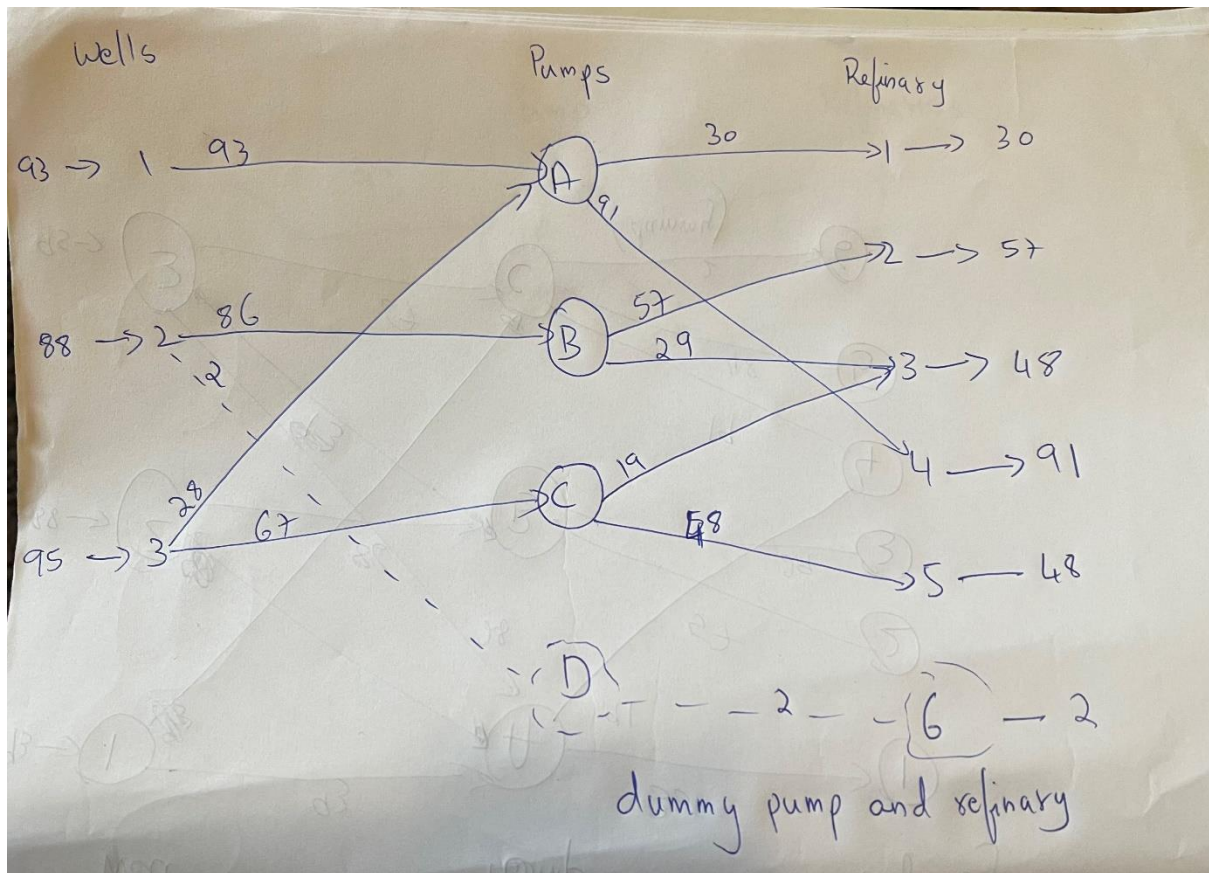 Wells Pumps Refinary
93 → 1 93 A 30 1 → 30
91
2 → 57
88 → 2 86 B 57
29 3 → 48
2
19 4 → 91
28
95 → 3 67 C 48 5 — 48
D 2 6 — 2
dummy pump and refinary